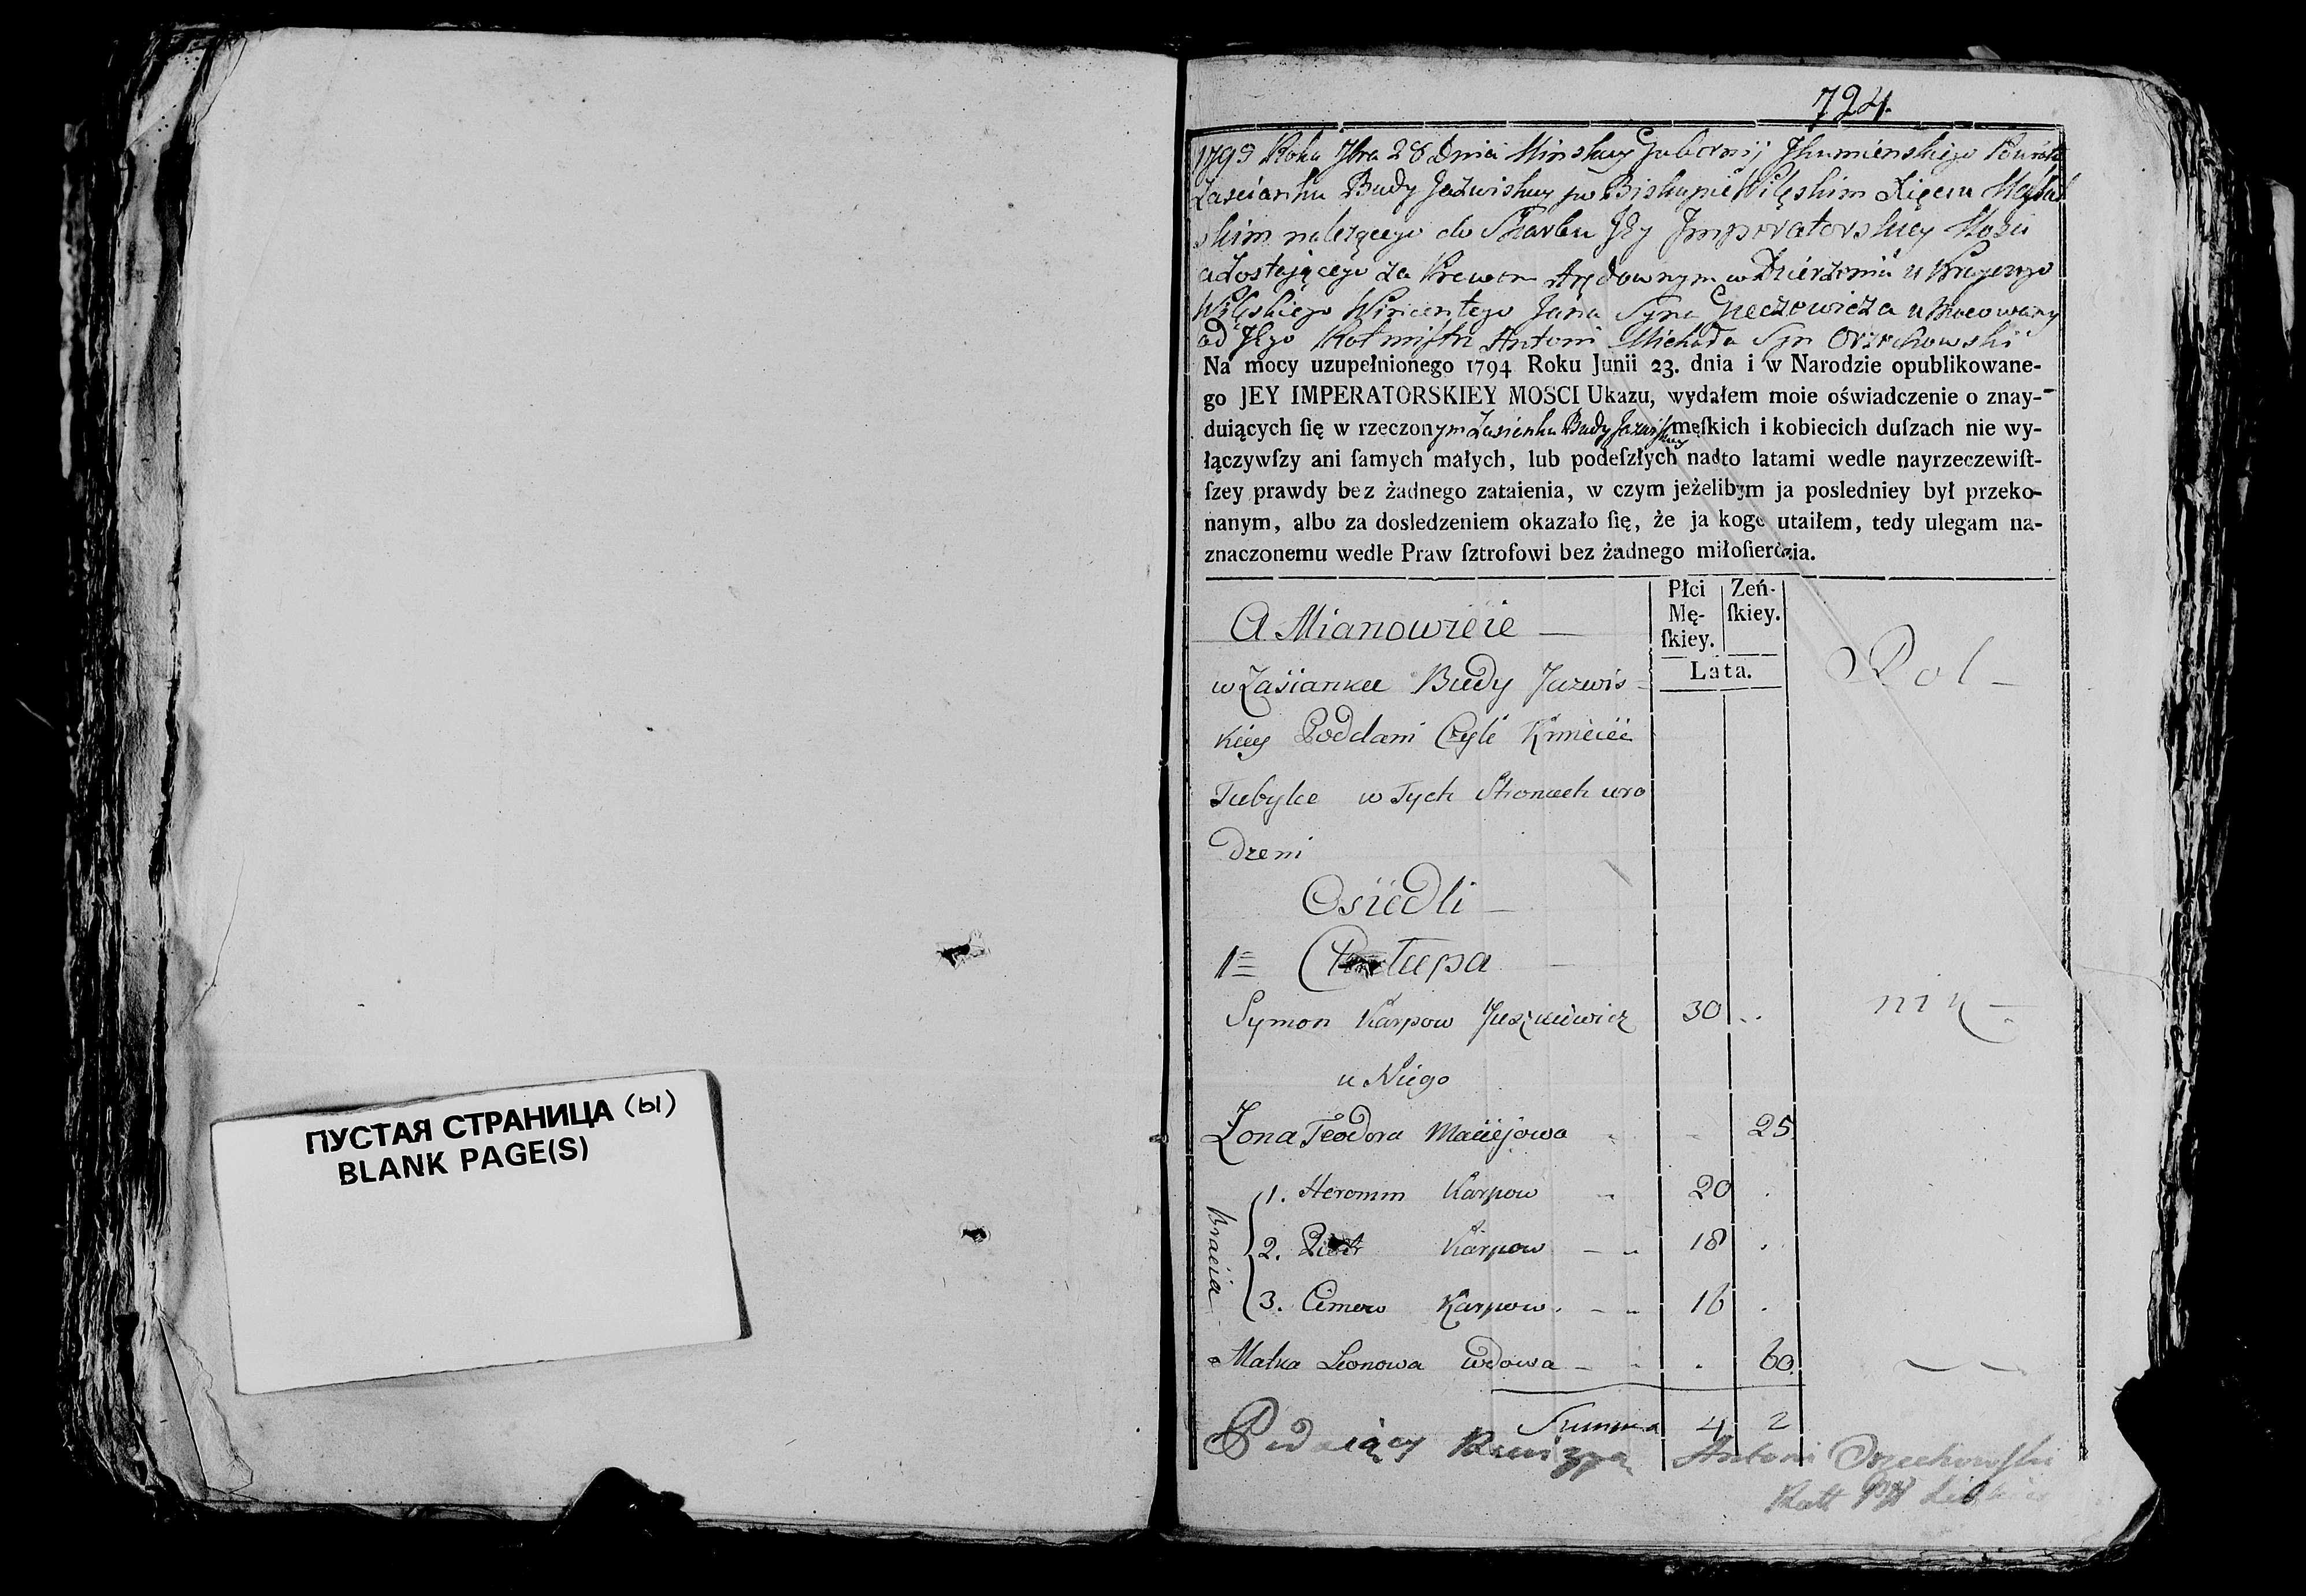 ПУСТАЯ СТРАНИЦА (Ы)
BLANK PAGE(S)
724.
1795 Roku 7bra 28 Dnia Minskiey Gubernij Ihumienskiego Powiatu
Zascianku Budy Jaźwiskiey po Biskupie Wileńskim Xięciu Massal
skim należącego do Skarbu Jey Imperatorskiey Mości
a zostającego za Prawem Arędownym w Dzierżeniu u
Wincentego Jana Syna
od Jego Rotmistr Antoni Michała Syn Orzechowski
Na mocy uzupełnionego 1794 Roku Junii 23. dnia i w Narodzie opublikowane-
go JEY IMPERATORSKIEY MOSCI Ukazu, wydałem moie oświadczenie o znay-
duiących ſię w rzeczonym Zasianku Budy Jazwiskiey męſkich i kobiecich duſzach nie wy-
łączywſzy ani ſamych małych, lub podeſzłych nadto latami wedle nayrzeczewiſt-
ſzey prawdy bez żadnego zataienia, w czym jeżelibym ja posledniey był przeko-
nanym, albo za dosledzeniem okazało ſię, że ja kogo utaiłem, tedy ulegam na-
znaczonemu wedle Praw ſztrofowi bez żadnego miłoſierdzia.
Płci Mę-ſkiey. Zeń-ſkiey.
Lata.
A Mianowicie —
w Zasianku Budy Jazwis-
kiey Poddani Czyli Kmiecie
Tubylce w Tych Stronach uro
dzeni
Osiedli —
Rol —
1 Chałupa —
Symon Karpow Juszkiewicz 30 . .
nik —
u Niego
Zona Teodora Maciejowa - - 25
Bracia
1. Heronim Karpow - 20 .
2. Piotr Karpow - - 18 .
3. Cimow Karpow. - - 16 .
Matka Leonowa Wdowa - - . 60.
Summa 4 2
Podaiący Rewizyą Antoni Orzechowski